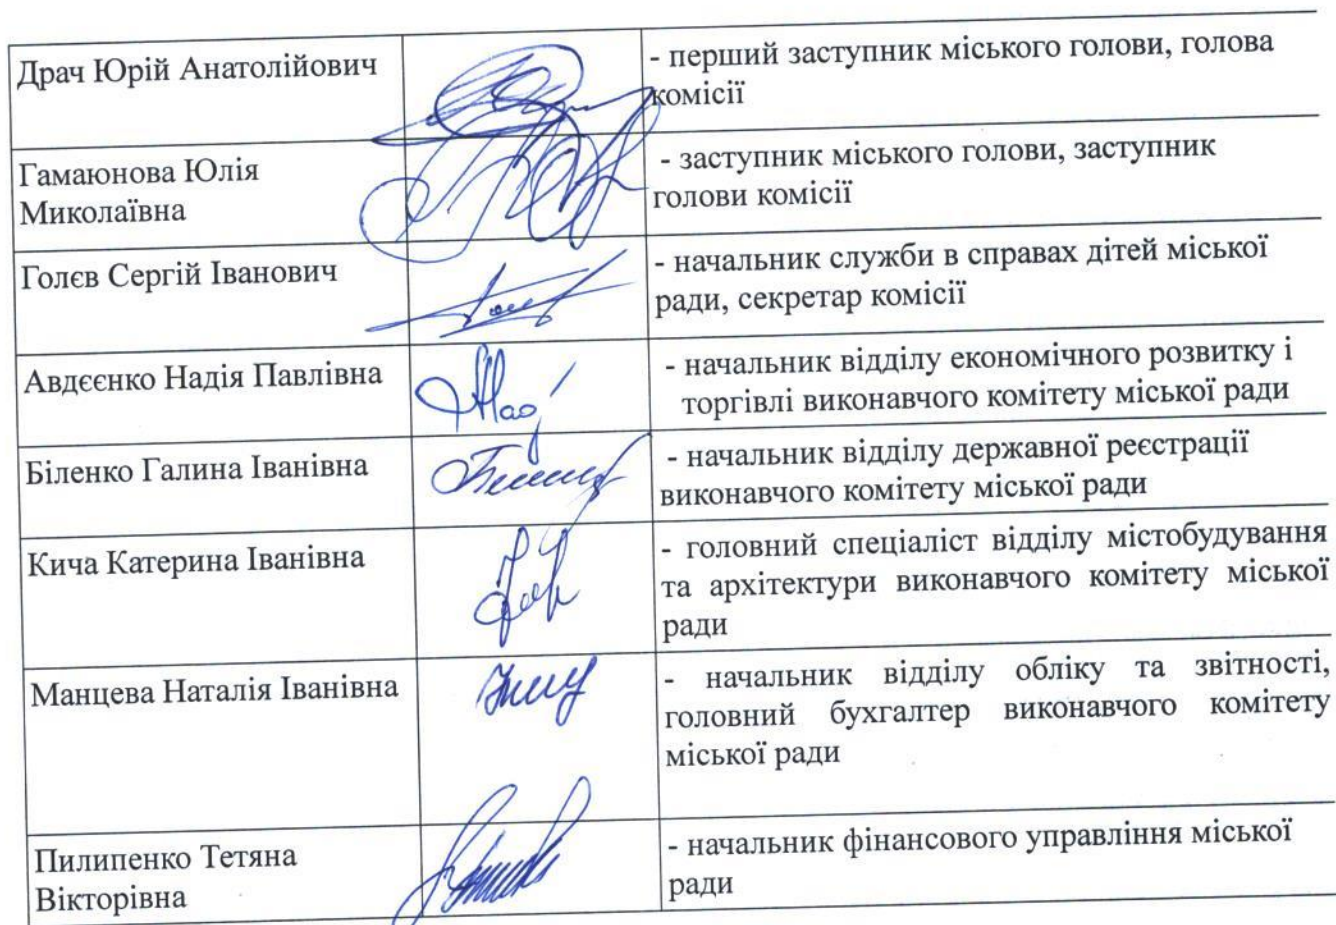 Драч Юрій Анатолійович
- перший заступник міського голови, голова
комісії
Гамаюнова Юлія
Миколаївна
- заступник міського голови, заступник
голови комісії
Голєв Сергій Іванович
- начальник служби в справах дітей міської
ради, секретар комісії
Авдєєнко Надія Павлівна
- начальник відділу економічного розвитку і
торгівлі виконавчого комітету міської ради
Біленко Галина Іванівна
- начальник відділу державної реєстрації
виконавчого комітету міської ради
Кича Катерина Іванівна
- головний спеціаліст відділу містобудування
та архітектури виконавчого комітету міської
ради
Манцева Наталія Іванівна
- начальник відділу обліку та звітності,
головний бухгалтер виконавчого комітету
міської ради
Пилипенко Тетяна
Вікторівна
- начальник фінансового управління міської
ради